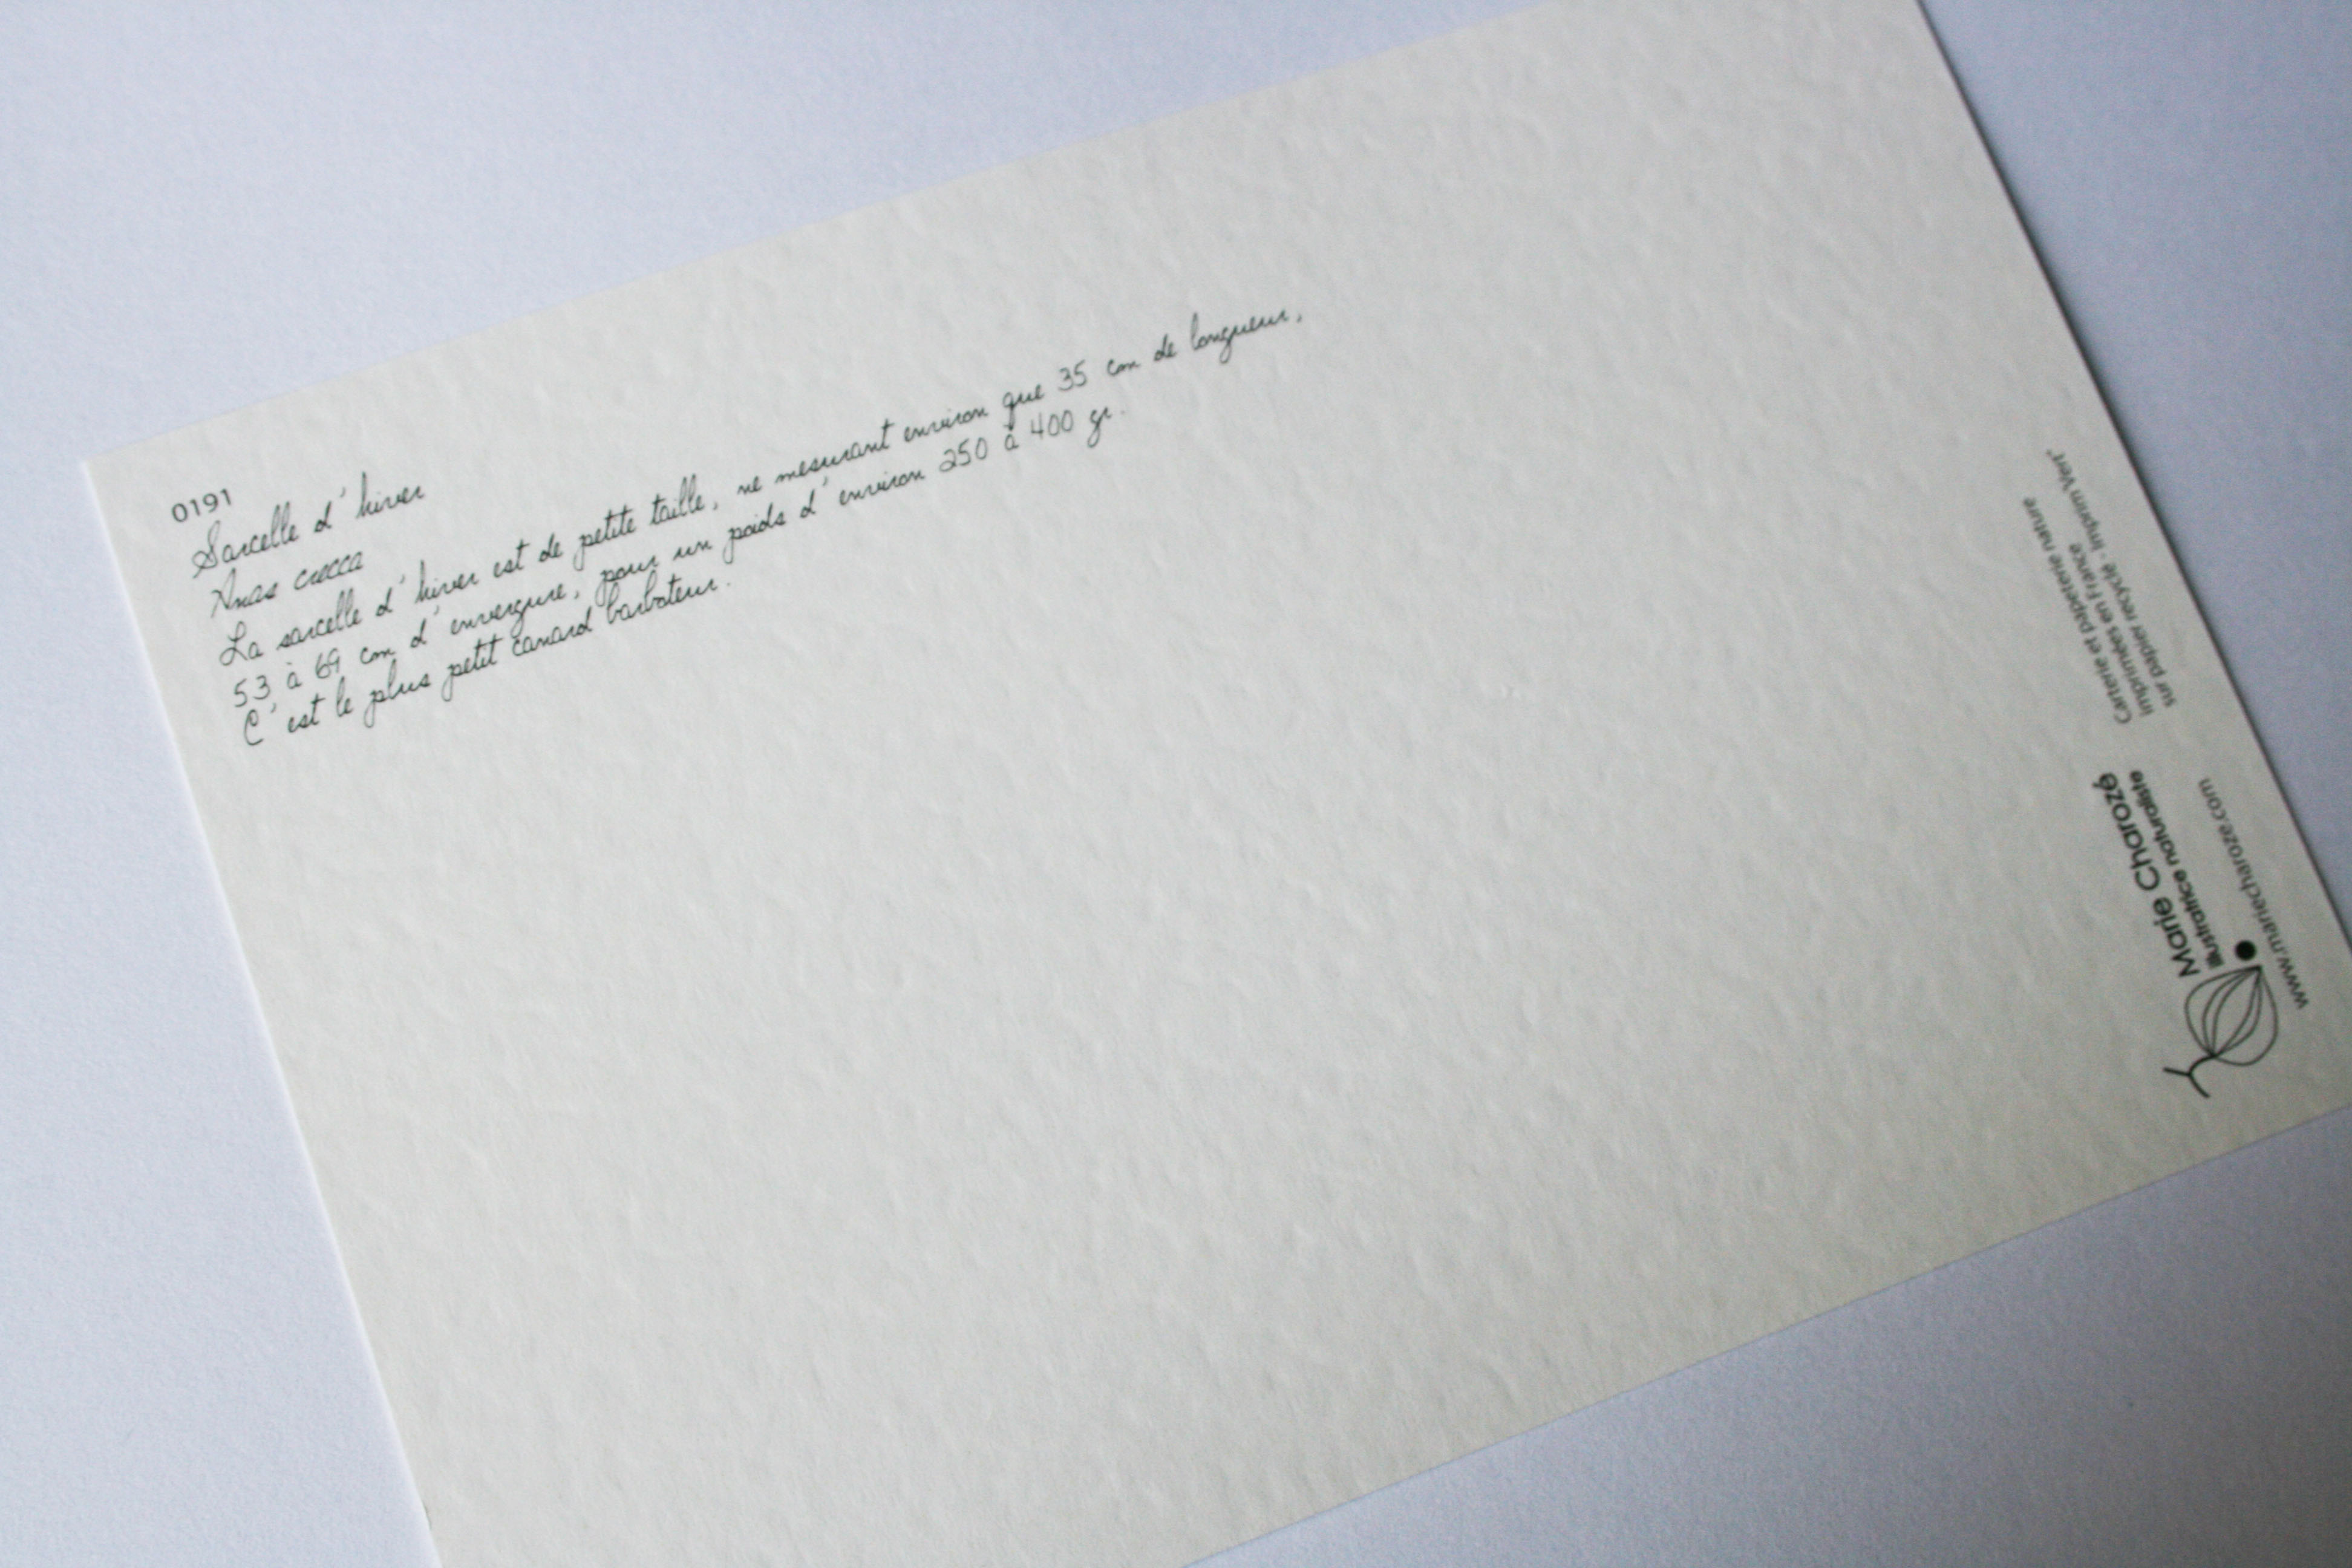 0191
Sarcelle d'hiver
Anas crecca
La sarcelle d'hiver est de petite taille, ne mesurant environ que 35 cm de longueur,
53 à 69 cm d'envergure, pour un poids d'environ 250 à 400 gr.
C'est le plus petit canard barboteur.
Marie Charozé
illustratrice naturaliste
www.mariecharoze.com
Carterie et papeterie nature
imprimées en France
sur papier recyclé - Imprim'Vert®